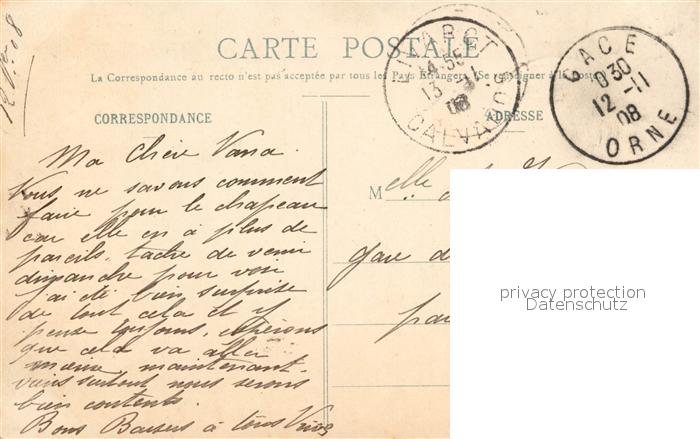 CARTE POSTALE
La Correspondance au recto n'est pas acceptée par tous les Pays Etrangers (Se renseigner à la Poste)
CORRESPONDANCE
ADRESSE
LIVAROT
14 55
13
08
CALVADOS
GACE
10 30
12 - 11
08
ORNE
Ma Chère
Nous ne savons comment
faire pour le chapeau
car elle en a plus de
pareils. tache de venir
dimanche pour voir
j'ai été bien surprise
de tout cela et j'y
pense toujours, espérons
que cela va aller
mieux, maintenant.
venez surtout nous serons
bien contents
Bons Baisers à tous
Melle
gare d
par
privacy protection
Datenschutz